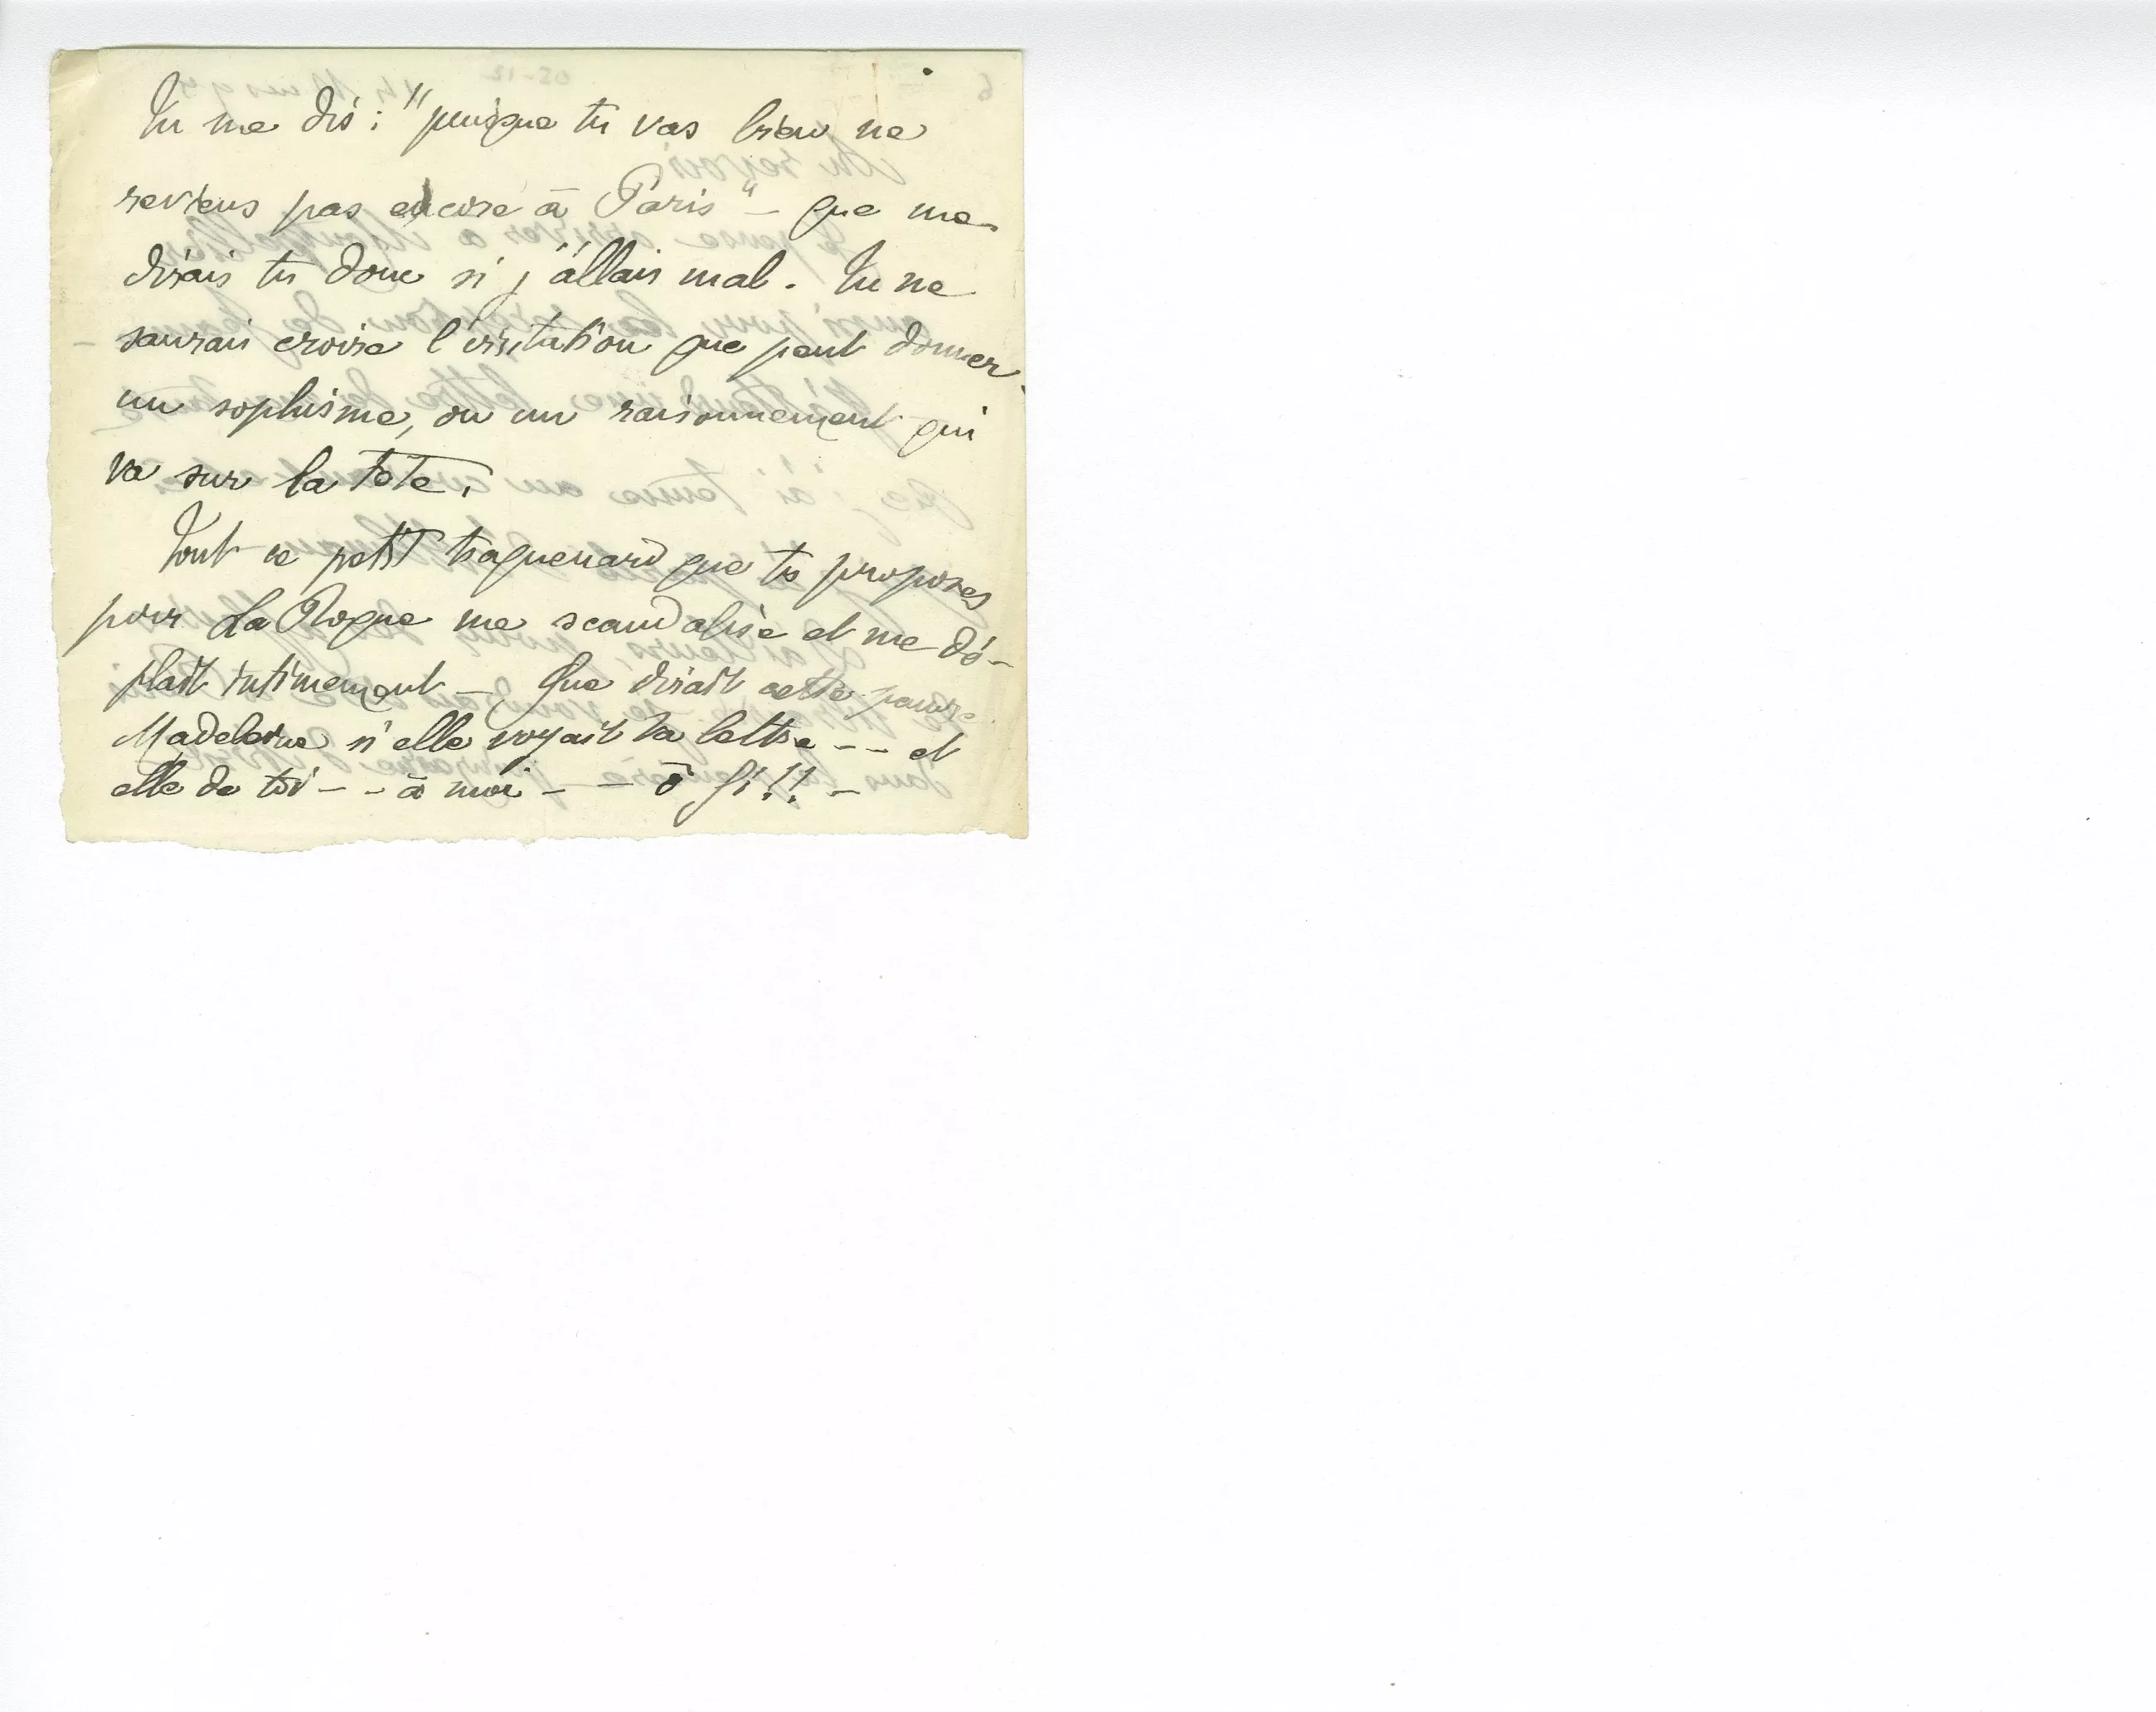 Tu me dis : "puisque tu vas bien ne
reviens pas encore à Paris" — que me
dirais tu donc si j'allais mal. Tu ne
saurais croire l'irritation que peut donner
un sophisme, ou un raisonnement qui
va sur la tête.
Tout ce petit traquenard que tu proposes
pour La Roque me scandalise et me dé-
plaît intimement — Que dirait cette pauvre
Madeleine si elle voyait ta lettre — — et
elle de toi — — à moi — — ô fi !! —